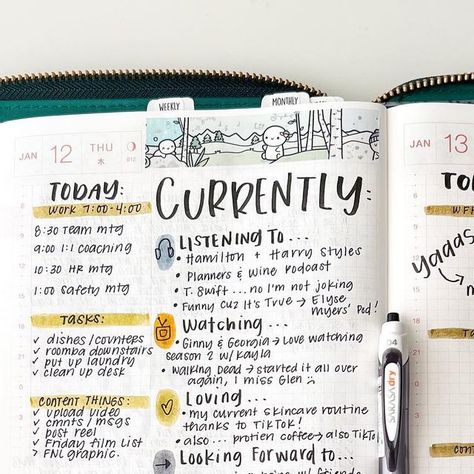 WEEKLY
MONTHLY
JAN 12 THU
木
TODAY:
WORK 7:00-4:00
8:30 TEAM mtg
9:00 1:1 COACHING
10:30 HR mtg
1:00 SAFETY mtg
TASKS:
✓ dishes/counters
✓ roomba downstairs
✓ put up laundry
✓ clean up desk
CONTENT THINGS:
✓ upload video
✓ cmnts / msgs
✓ post reel
✓ Friday film list
➤ FNL graphic.
CURRENTLY:
LISTENING TO...
• Hamilton + Harry Styles
• Planners & Wine Podcast
• T. Swift... no I'm not joking
• Funny Cuz It's True → Elyse
Myers' Pod!
Watching...
• Ginny & Georgia → Love watching
season 2 w/ Kayla
• Walking Dead → started it all over
again, I miss Glen :(
Loving...
• my current skincare routine
thanks to TikTok!
• also... protien coffee → also TikTok
Looking Forward to...
JAN 13
木
yaaas
04
SARASA dry